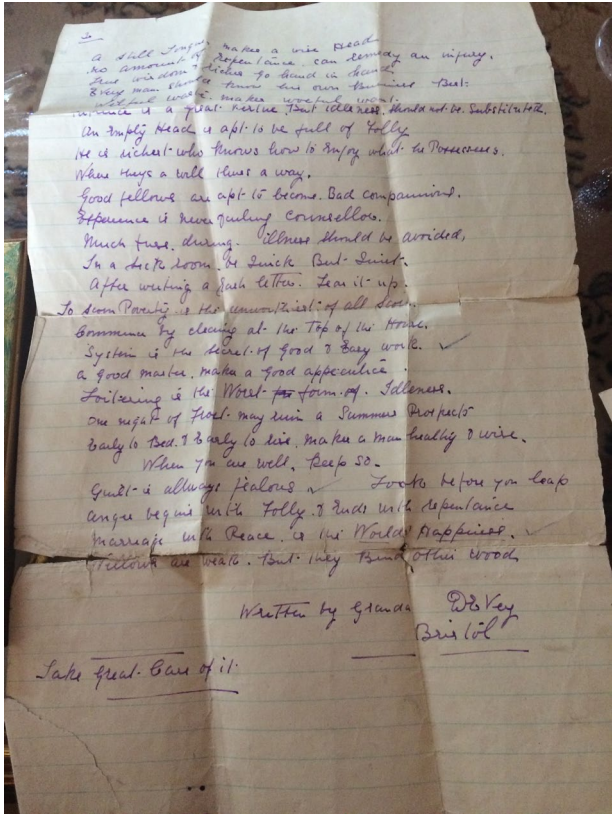 a still Tongue makes a wise Head
no amount of Repentance can remedy an injury.
True wisdom & Riches go hand in hand
Every man should know his own Business Best
wilful waste makes woeful want
is a great virtue But Idleness should not be Substituted.
An Empty Head is apt to be full of Folly
He is richest who knows how to Enjoy what he Possesses.
Where theys a will thers a way.
Good fellows are apt to become Bad companions.
Experience is never failing Counsellor.
Much fuss during illness should be avoided,
In a sick room be Quick But Quiet.
After writing a rash letter. Tear it up.
To scorn Poverty is the unworthiest of all Scorn
Commence by cleaning at the Top of the House.
System is the secret of Good & Easy work.
a good master make a good apprentice.
Loitering is the Worst form of Idleness.
One night of Frost may ruin a Summers Prospects
Early to Bed & Early to rise, makes a man healthy & wise.
When you are well, keep so.
Guilt is allways jealous Look before you leap
anger begins with Folly & Ends with repentance
Marriage with Peace is the Worlds Happiness.
Willows are weak. But they Bind other Wood
Written by Granda D E Vey
Bristol
Take Great Care of it